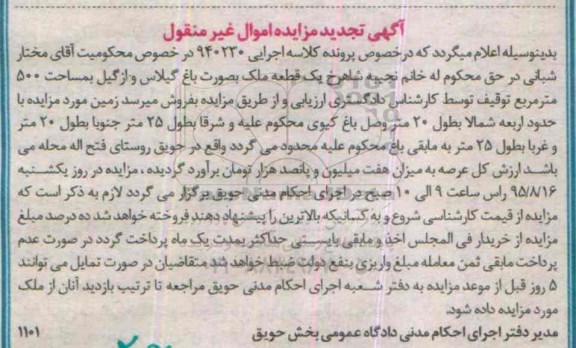 آگهی تجدید مزایده اموال غیر منقول
بدینوسیله اعلام میگردد که درخصوص پرونده کلاسه اجرایی ۹۴۰۲۳۰ در خصوص محکومیت آقای مختار
شبانی در حق محکوم له خانم نجیبه شاهرخ یک قطعه ملک بصورت باغ گیلاس و ازگیل بمساحت ۵۰۰
مترمربع توقیف توسط کارشناس دادگستری ارزیابی و از طریق مزایده بفروش میرسد زمین مورد مزایده با
حدود اربعه شمالا بطول ۲۰ متر وصل باغ کیوی محکوم علیه و شرقا بطول ۲۵ متر جنوبا بطول ۲۰ متر
و غربا بطول ۲۵ متر به مابقی باغ محکوم علیه محدود می گردد واقع در حویق روستای فتح اله محله می
باشد ارزش کل عرصه به میزان هفت میلیون و پانصد هزار تومان برآورد گردیده ، مزایده در روز یکشنبه
۹۵/۸/۱۶ راس ساعت ۹ الی ۱۰ صبح در اجرای احکام مدنی حویق برگزار می گردد لازم به ذکر است که
مزایده از قیمت کارشناسی شروع و به کسانیکه بالاترین را پیشنهاد دهند فروخته خواهد شد ده درصد مبلغ
مزایده از خریدار فی المجلس اخذ و مابقی بایستی حداکثر بمدت یک ماه پرداخت گردد در صورت عدم
پرداخت مابقی ثمن معامله مبلغ واریزی بنفع دولت ضبط خواهد شد متقاضیان در صورت تمایل می توانند
۵ روز قبل از موعد مزایده به دفتر شعبه اجرای احکام مدنی حویق مراجعه تا ترتیب بازدید آنان از ملک
مورد مزایده داده شود.
مدیر دفتر اجرای احکام مدنی دادگاه عمومی بخش حویق ۱۱۰۱